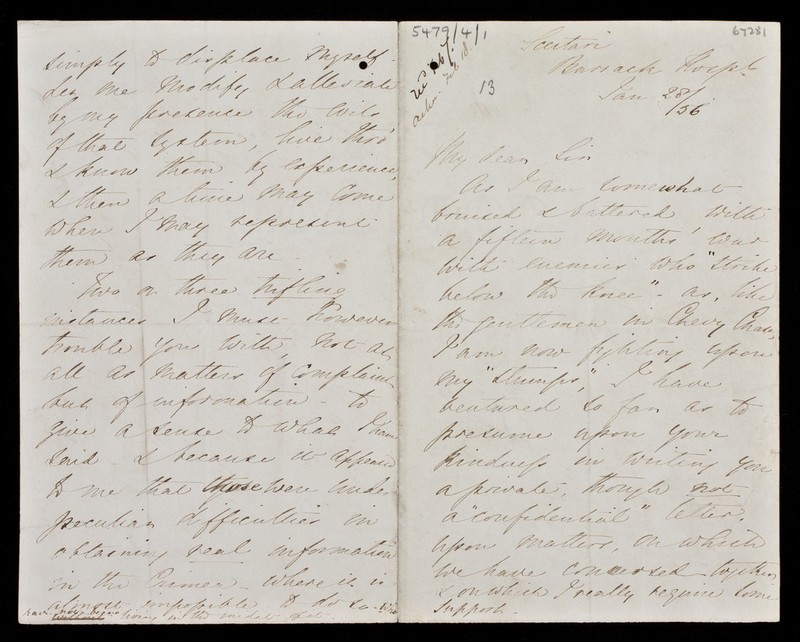 simply to displace myself.
Let me modify & alleviate
by my presence the evils
of that system, live thro'
& know them by experience,
& then a time may come
when I may represent
them as they are.
Two or three trifling
instances I must however
trouble you with, not at
all as matters of complaint
but of information - to
give a sense to what I have
said & because it appears
to me that those were under
peculiar difficulties in
obtaining real information
in the Crimea - where it is
almost impossible to do so
living in the midst of it
5479/4/1
67281
13
Scutari
Barrack Hosp.l
Jan 28/56
My dear Sir
As I am somewhat
bruised & battered with
a fifteen months' war
with enemies who "strike
below the knee" - as, like
the gentleman in Chevy Chase,
I am now fighting upon
my "stumps," I have
ventured so far as to
presume upon your
kindness in writing you
a private, though not
a "confidential" letter,
upon matters, on which
we have conversed together
& on which I really require some
support.